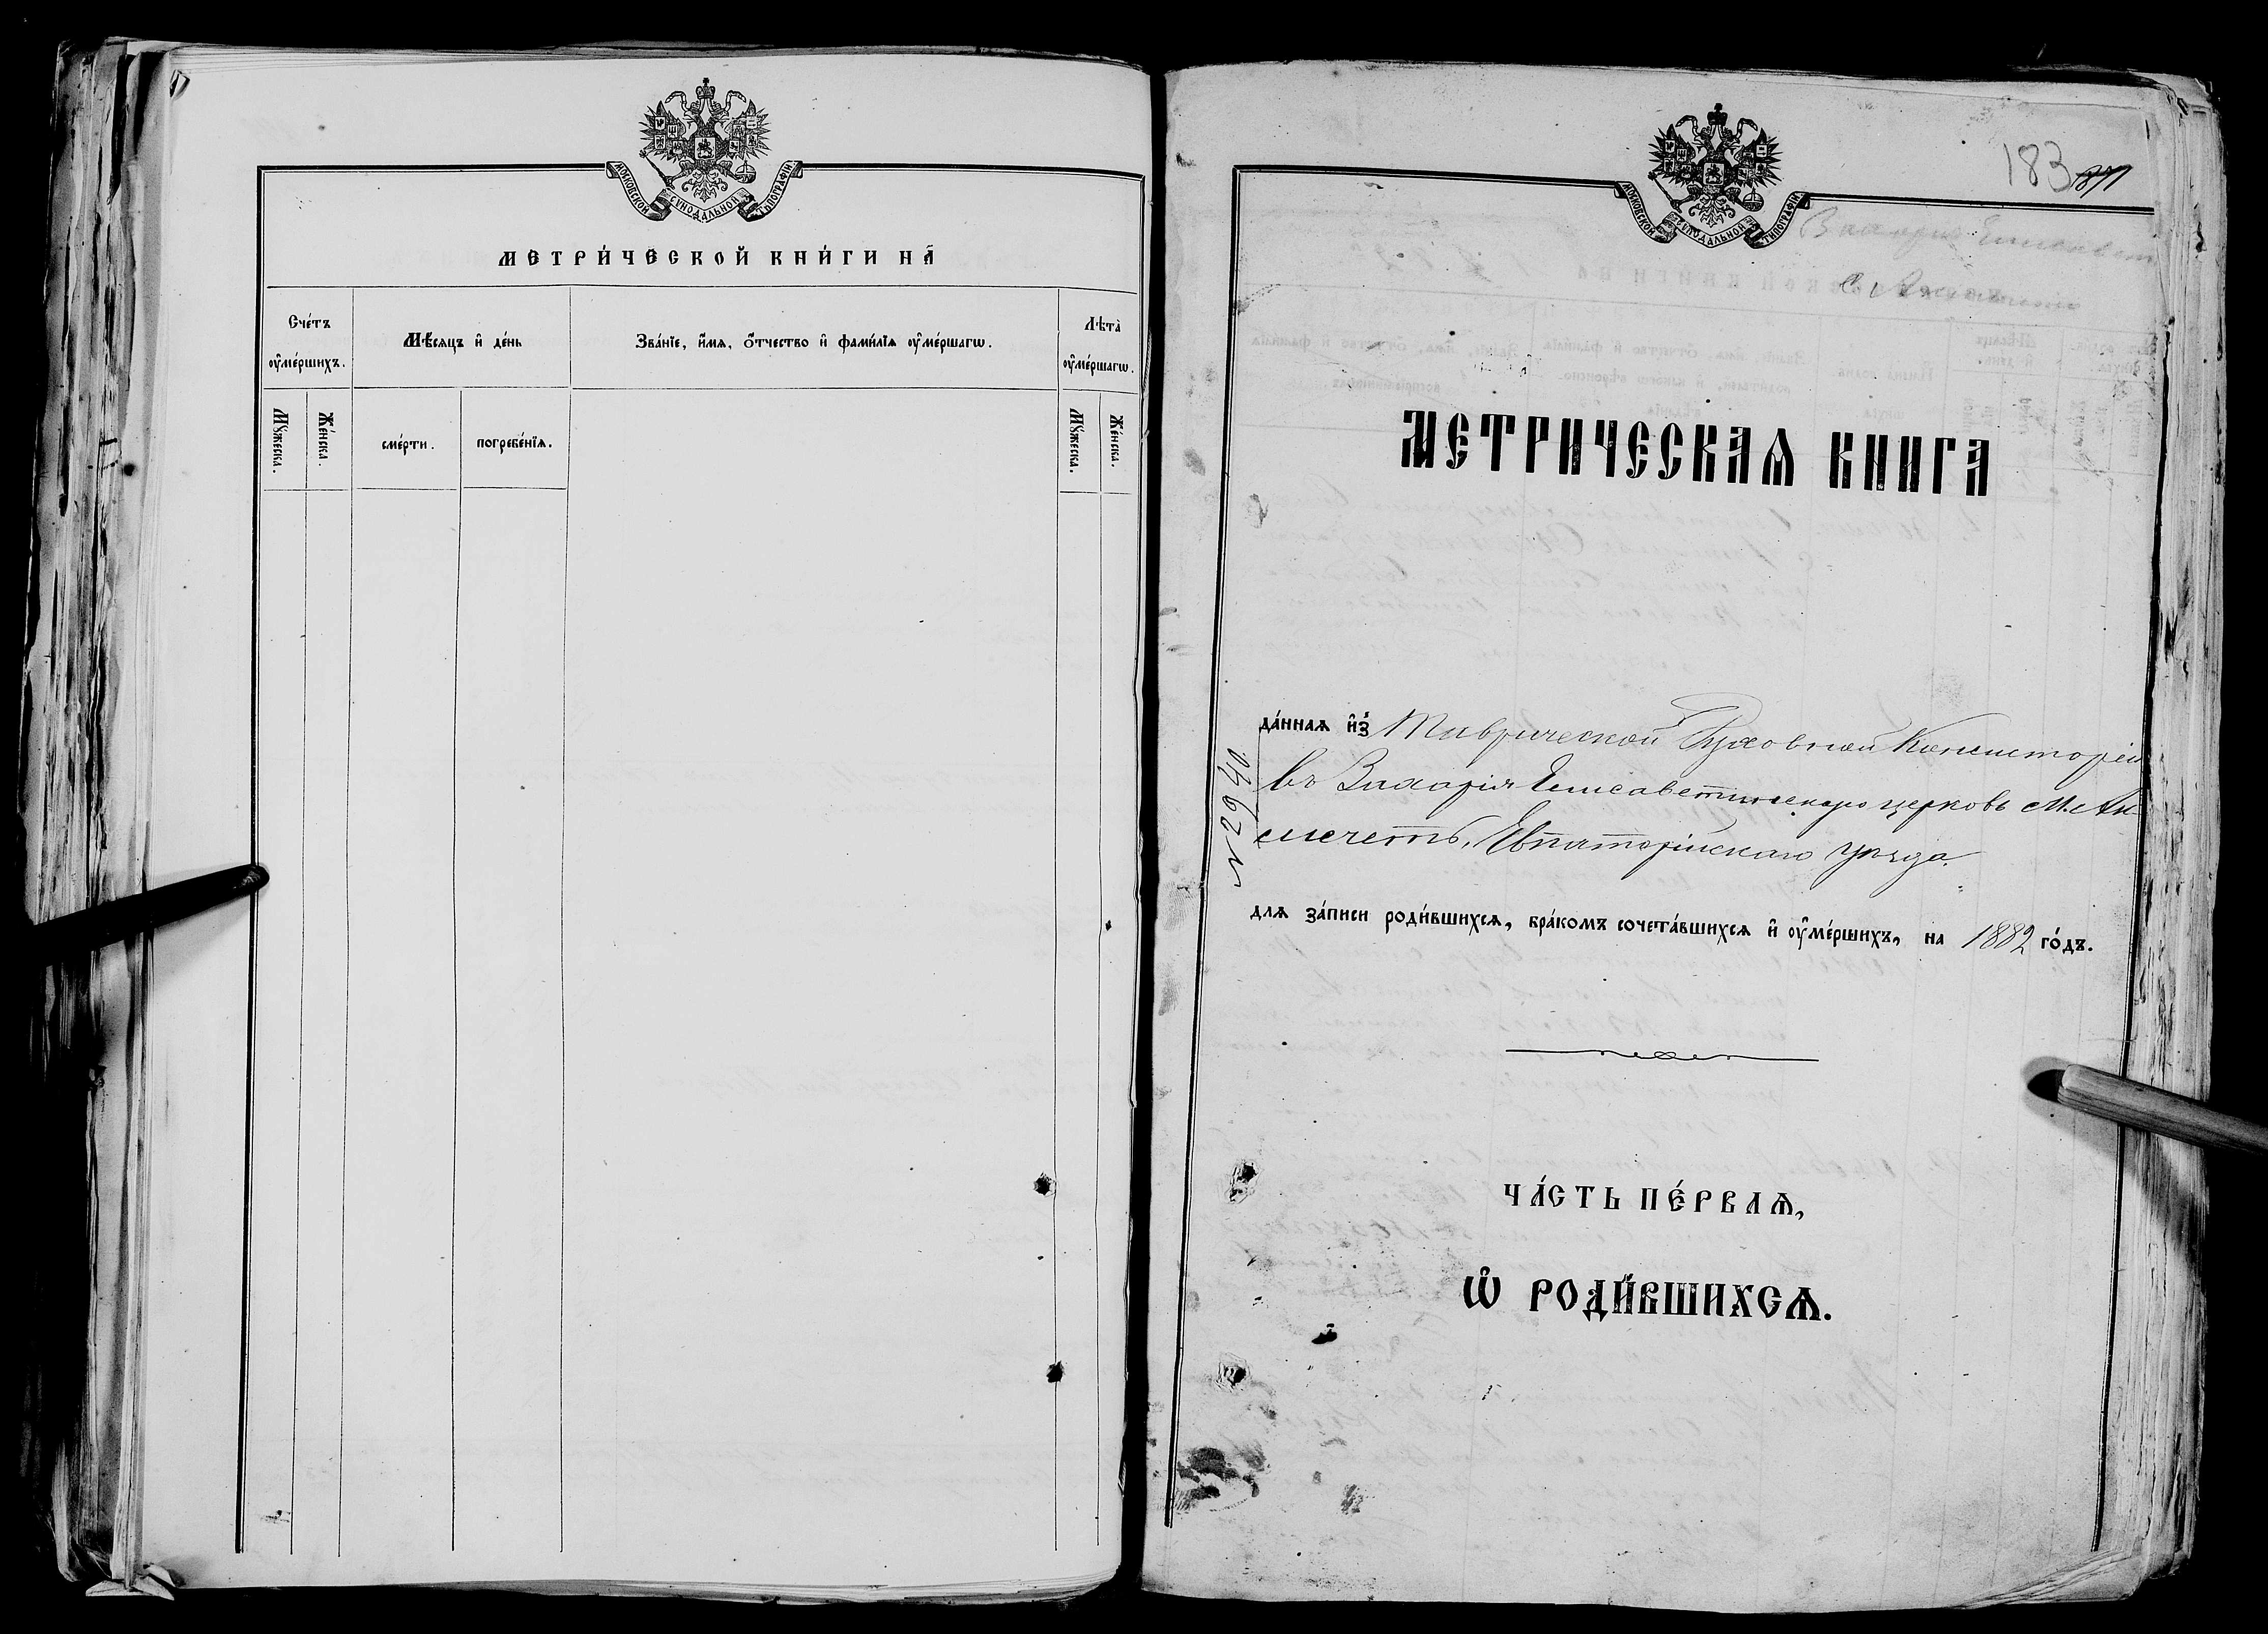 МОСКОВСКОЙ СѴНОДАЛЬНОЙ ТИПОГРАФІИ
МЕТРИ́ЧЕСКОЙ КНИ́ГИ НА̀
Сче́тъ ᲂу҆ме́ршихъ.
Мѣ́сяцъ и҆ де́нь
Зва́нїе, и҆́мѧ, ѻ҆́тчество и҆ фами́лїѧ ᲂу҆ме́ршагѡ.
Лѣта̀ ᲂу҆ме́ршагѡ.
Мꙋ́жеска.
Же́нска.
сме́рти.
погребе́нїѧ.
Мꙋ́жеска.
Же́нска.
МОСКОВСКОЙ СѴНОДАЛЬНОЙ ТИПОГРАФІИ
183
МЕТРИЧЕСКАѦ КНИГА
да́ннаѧ и҆з̾ Таврической Духовной Консисторіи
въ Захарія Елисаветинскую церковь м. Ак-
мечеть, Евпаторійскаго уѣзда.
для за́писи роди́вшихсѧ, бра́комъ сочета́вшихсѧ и҆ ᲂу҆ме́ршихъ, на 1882 го́дъ.
ЧА́СТЬ ПЕ́РВАѦ,
Ѡ҆ РОДИ́ВШИХСѦ.